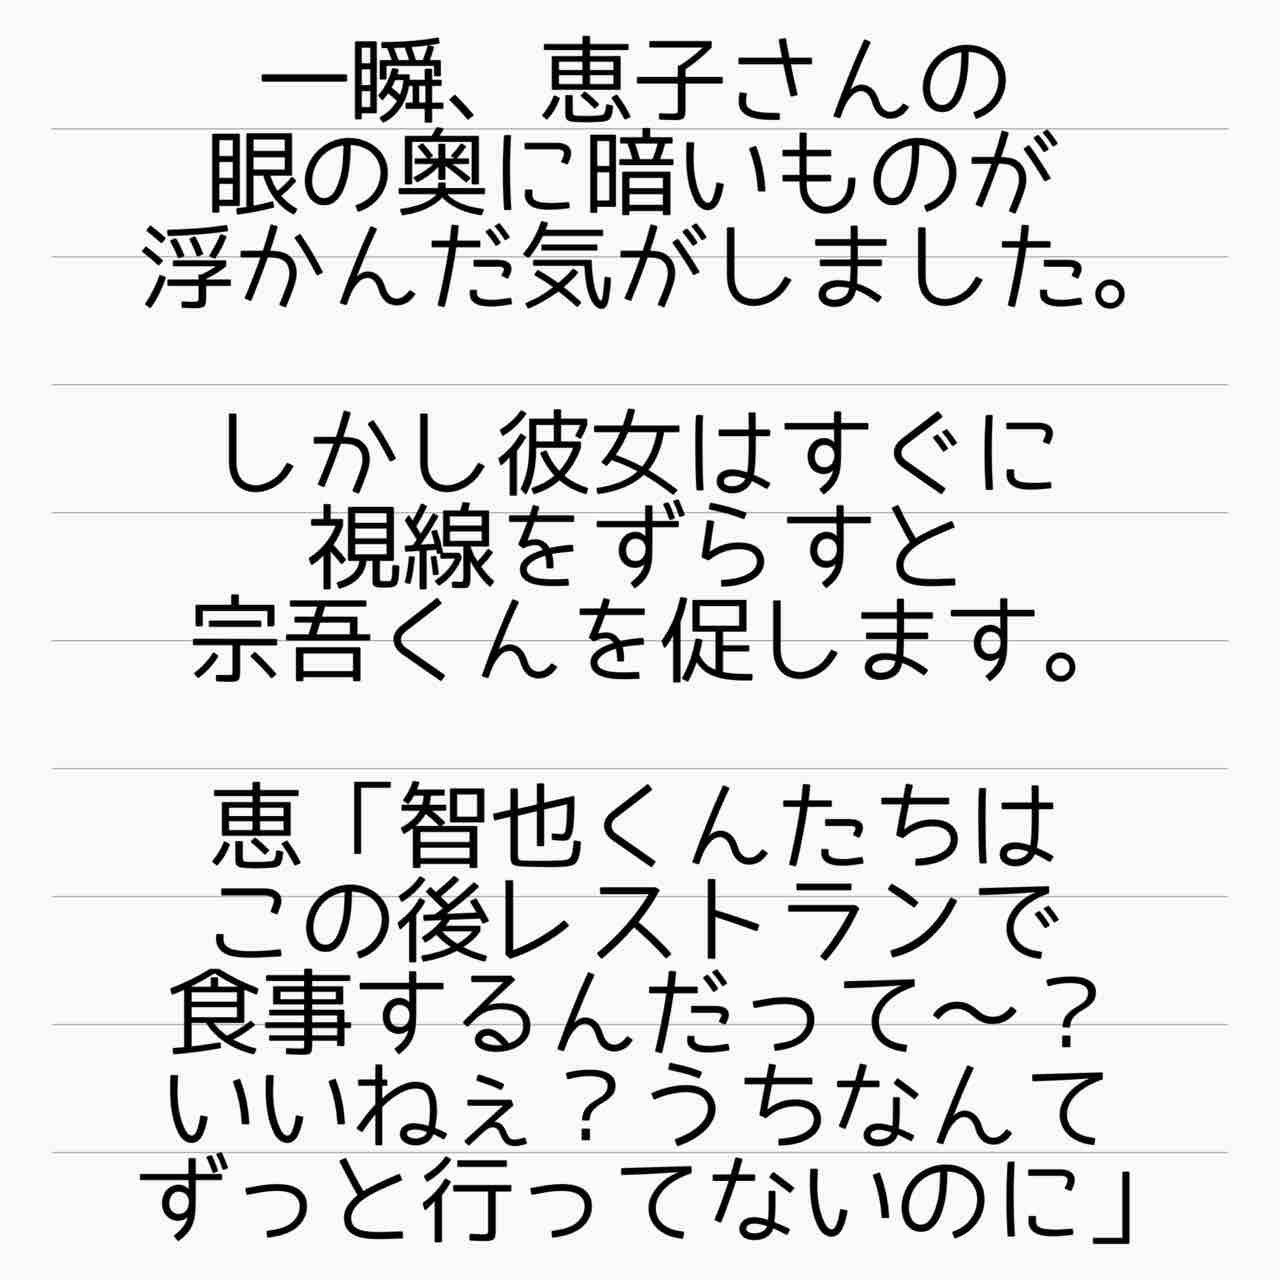 一瞬、恵子さんの
眼の奥に暗いものが
浮かんだ気がしました。
しかし彼女はすぐに
視線をずらすと
宗吾くんを促します。
恵「智也くんたちは
この後レストランで
食事するんだって～？
いいねぇ？うちなんて
ずっと行ってないのに」